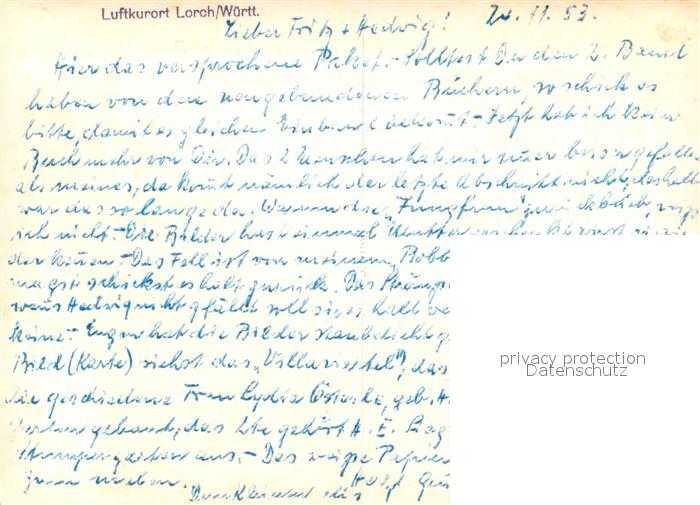 Luftkurort Lorch/Württ.
Lieber Fritz + Hedwig! 24.11.53.
Hier das versprochene Paket. - Solltest Du den 2. Band
haben von den neugebundenen Büchern, so schick es
bitte, damit es gleichen Einband bekomt. - Jetzt hab ich kein
Buch mehr von Dir. Das 2 Menschen hat mir nuer besser gefallen
als meines, da komt nämlich der letzte Abschnitt nicht, deshalb
war das so lange da. Warum die "Jungfrau" zurückblieb,
ich nicht. - Die Bilder hast einmal Mutter
der keuen. - Das Fell ist von meinem Robb
magst schickst es halt zurück. Das
Hedwig nicht gefällt soll sie es halt
keine. - Eugen hat die Bilder staubdicht
Bild (Karte) siehst das "Villaviertel", das
die geschiedene Frau Lydia geb.
das 2te gehört H. E.
aus. - Das Papier
zum
Herzl.
privacy protection
Datenschutz